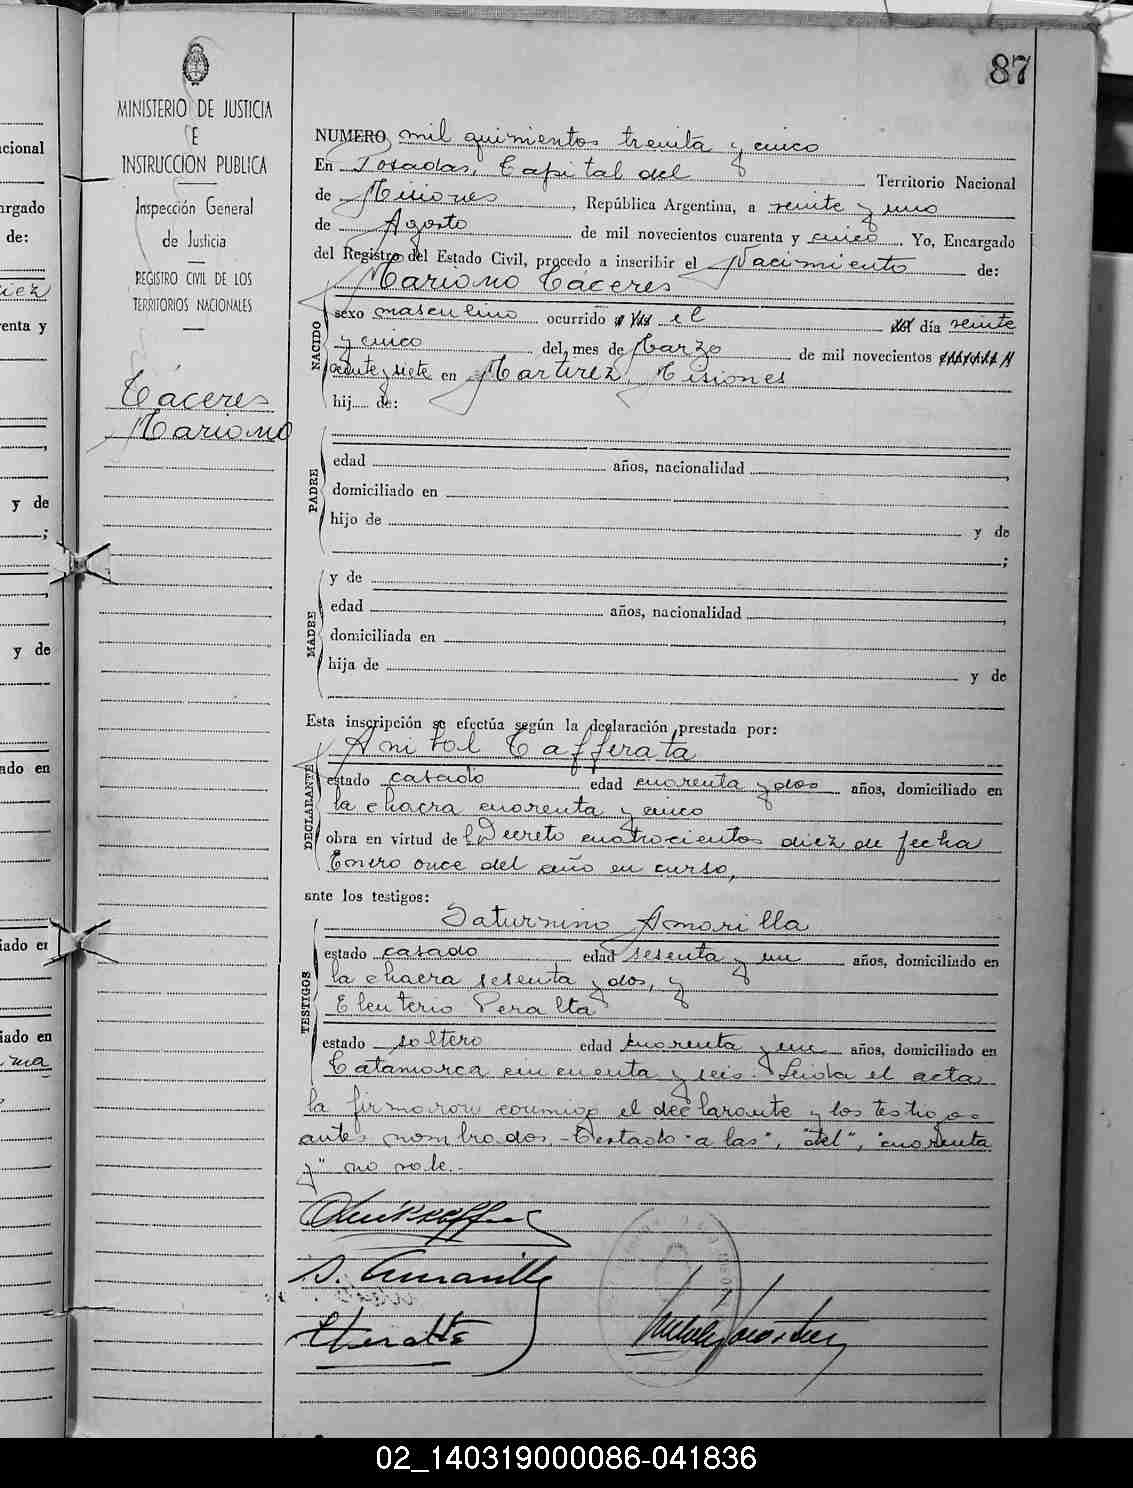 87
MINISTERIO DE JUSTICIA
E
INSTRUCCION PUBLICA
Inspección General
de Justicia
REGISTRO CIVIL DE LOS
TERRITORIOS NACIONALES
Cáceres
Mariano
NUMERO mil quinientos treinta y cinco
En Posadas, Capital del Territorio Nacional
de Misiones, República Argentina, a veinte y uno
de Agosto de mil novecientos cuarenta y cinco. Yo, Encargado
del Registro del Estado Civil, procedo a inscribir el Nacimiento de:
Mariano Cáceres
NACIDO
sexo masculino ocurrido el día veinte
y cinco del mes de Marzo de mil novecientos
veinte y siete en Martirez, Misiones
hij..... de:
PADRE
edad años, nacionalidad
domiciliado en
hijo de y de
;
MADRE
y de
edad años, nacionalidad
domiciliada en
hija de y de
Esta inscripción se efectúa según la declaración prestada por:
Anibal Cafferata
DECLARANTE
estado casado edad cuarenta y dos años, domiciliado en
la chacra cuarenta y cinco
obra en virtud del Decreto cuatrocientos diez de fecha
Enero once del año en curso,
ante los testigos:
Saturnino Amarilla
TESTIGOS
estado casado edad sesenta y un años, domiciliado en
la chacra sesenta y dos, y
Eleuterio Peralta
estado soltero edad cuarenta y un años, domiciliado en
Catamarca cincuenta y seis. Leida el acta
la firmaron conmigo el declarante y los testigos
antes nombrados. - Testado "a las", "del", "cuarenta
y" no vale.-
S. Amarilla
cional
argado
de:
diez
enta y
y de
;
y de
ado en
iado en
iado en
02_140319000086-041836